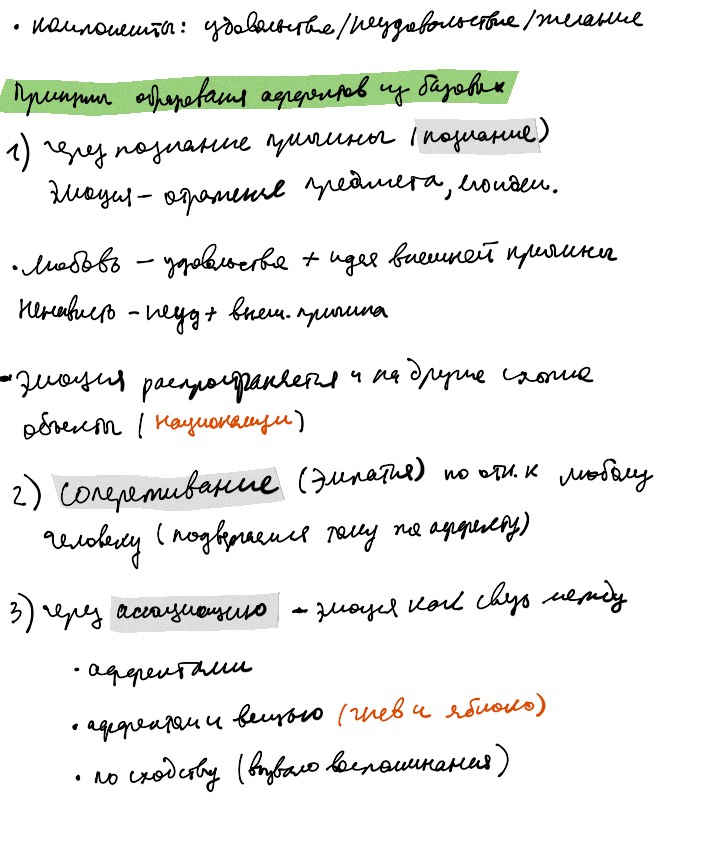 • компоненты: удовольствие/неудовольствие/желание
Принципы образования аффектов из базовых
1) через познание причины (познание)
Эмоция – отражение предмета,
• Любовь – удовольствие + идея внешней причины
Ненависть – неуд + внеш. причина
- Эмоция распространяется и на другие схожие
объекты (национализм)
2) Сопереживание (Эмпатия) по отн. к любому
человеку (подвергаемся тому же аффекту)
3) через ассоциацию – эмоция как связь между
• аффектами
• аффектом и вещью (гнев и яблоко)
• по сходству (вызвало воспоминания)